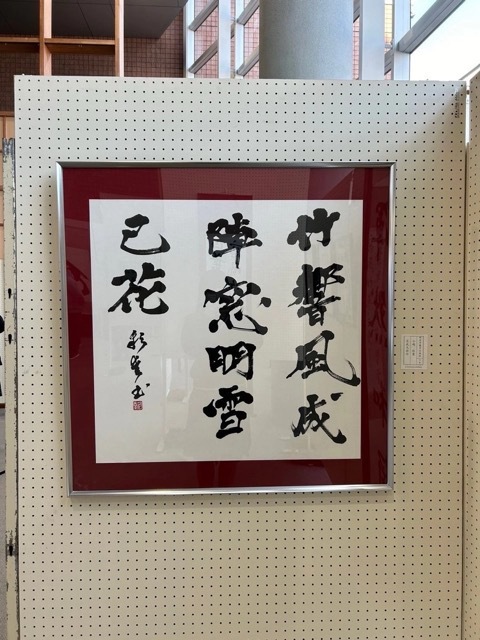 竹響風成
陣窓明雪
已花